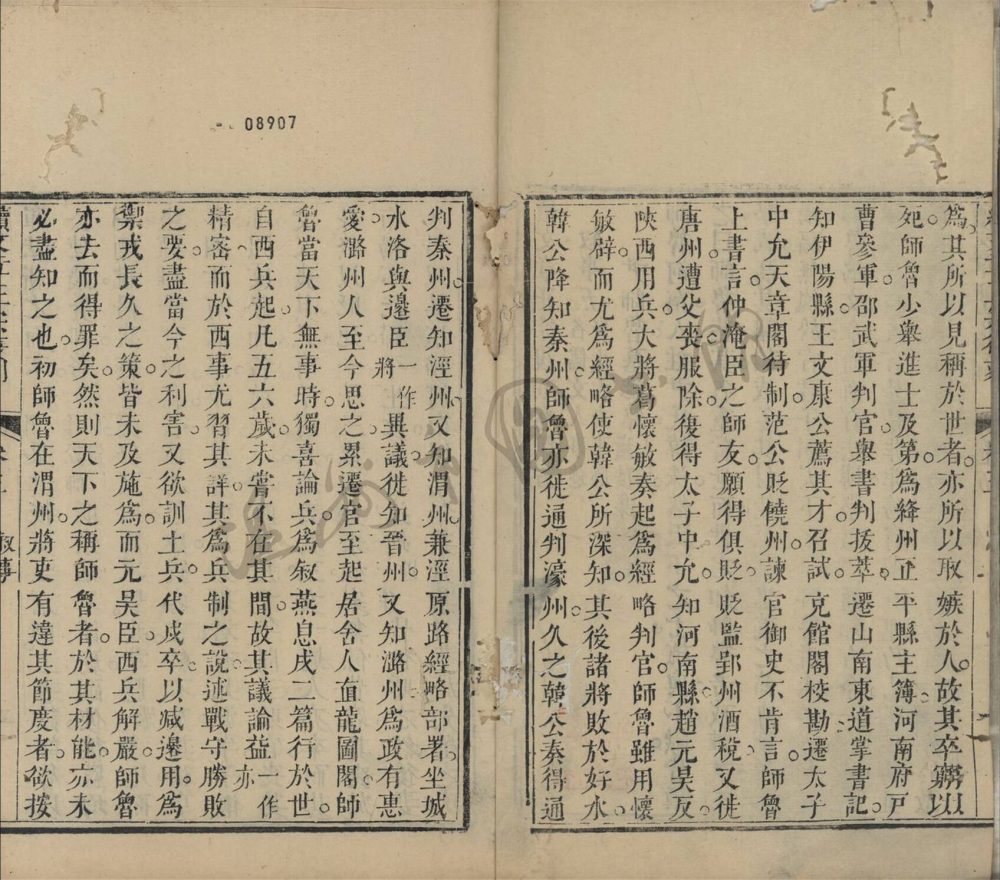 為其所以見稱於世者亦所以取嫉於人故其卒窮以
死師魯少舉進士及第為絳州正平縣主簿河南府戸
曹參軍邵武軍判官舉書判拔萃遷山南東道掌書記
知伊陽縣王文康公薦其才召試充館閣校勘遷太子
中允天章閣待制范公貶饒州諫官御史不肯言師魯
上書言仲淹臣之師友願得俱貶貶監郢州酒稅又徙
唐州遭父喪服除復得太子中允知河南縣趙元昊反
陝西用兵大將葛懷敏奏起為經略判官師魯雖用懷
敏辟而尤為經略使韓公所深知其後諸將敗於好水
韓公降知秦州師魯亦徙通判濠州久之韓公奏得通
判秦州遷知涇州又知渭州兼涇原路經略部署坐城
水洛與邊臣一作將異議徙知晉州又知潞州為政有惠
愛潞州人至今思之累遷官至起居舍人直龍圖閣師
魯當天下無事時獨喜論兵為敘燕息戍二篇行於世
自西兵起凡五六歲未嘗不在其間故其議論益一作亦
精密而於西事尤習其詳其為兵制之說述戰守勝敗
之要盡當今之利害又欲訓土兵代戍卒以減邊用為
禦戎長久之策皆未及施為而元昊臣西兵解嚴師魯
亦去而得罪矣然則天下之稱師魯者於其材能亦未
必盡知之也初師魯在渭州將吏有違其節度者欲按
08907